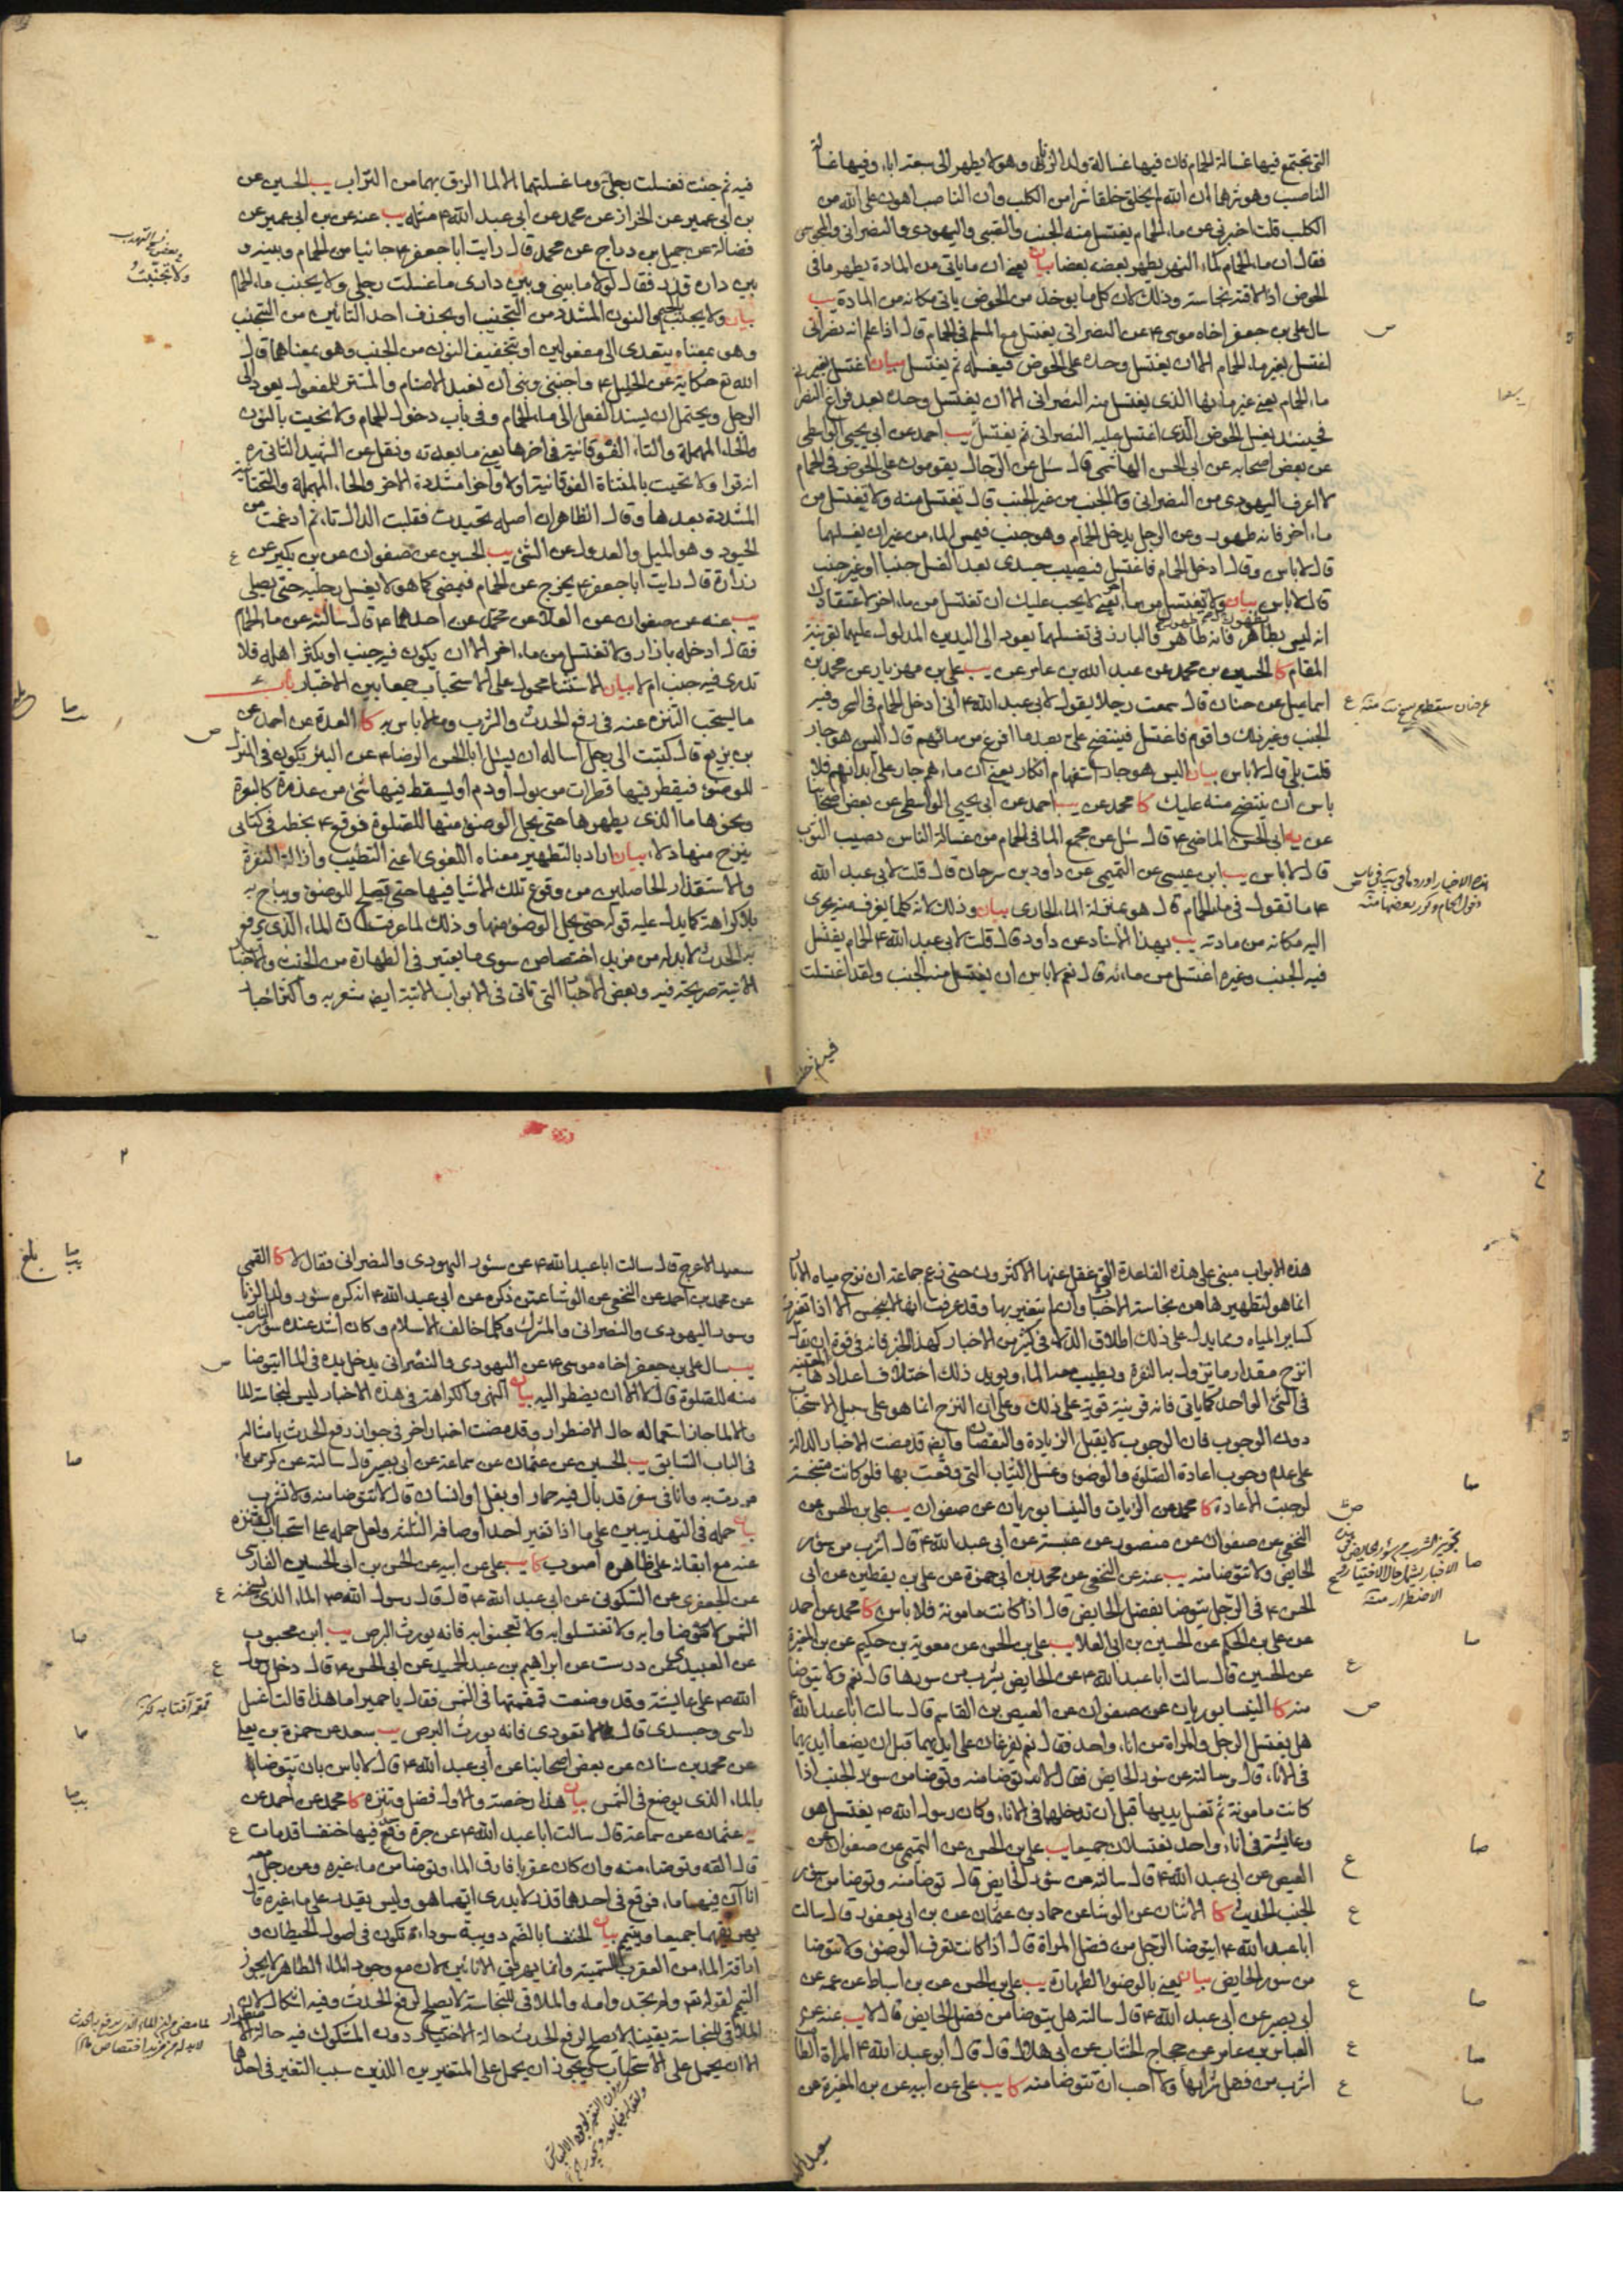 التى تجتمع فيها غسالة الحمام فان فيها غسالة ولد الزنا وهو لا يطهر الى سبعة اباء وفيها غسالة
الناصب وهو شرهما ان الله لم يخلق خلقا شرا من الكلب وان الناصب اهون على الله من
الكلب قلت اخبرنى عن ماء الحمام يغتسل منه الجنب والصبى واليهودى والنصرانى والمجوسى
فقال ان ماء الحمام كماء النهر يطهر بعضه بعضا بيان يعنى ان ما ياتى من المادة يطهر ما فى
الحوض اذا لاقته نجاسة وذلك لان كل ما يوخذ من الحوض ياتى مكانه من المادة يب
سال على بن جعفر اخاه موسى ع عن النصرانى يغتسل مع المسلم فى الحمام قال اذا علم انه نصرانى
اغتسل بغير ماء الحمام الا ان يغتسل وحده على الحوض فيغسله ثم يغتسل بيان اغتسل بغير
ماء الحمام يعنى غير مائها الذى يغتسل منه النصرانى الا ان يغتسل وحده بعد فراغ النصرانى
فحينئذ يغسل الحوض الذى اغتسل عليه النصرانى ثم يغتسل يب احمد عن ابى يحيى الواسطى
عن بعض اصحابه عن ابى الحسن الهاشمى قال سئل عن الرجال يقومون على الحوض فى الحمام
لا اعرف اليهودى من النصرانى ولا الجنب من غير الجنب قال تغتسل منه ولا تغتسل من
ماء اخر فانه طهور وعن الرجل يدخل الحمام وهو جنب فيمس الماء من غير ان يغسلهما
قال لا باس وقال ادخل الحمام فاغتسل فيصيب جسدى بعد الغسل جنبا او غير جنب
قال لا باس بيان ولا تغتسل من ماء اخر يعنى لا يجب عليك ان تغتسل من ماء اخر لاعتقادك
انه ليس بطاهر فانه طاهر والبارز فى تغسلهما يعود الى اليدين المدلول عليهما بقرينة
المقام كا الحسين بن محمد عن عبد الله بن عامر عن يب على بن مهزيار عن محمد بن
اسماعيل عن حنان قال سمعت رجلا يقول لابى عبد الله ع انى ادخل الحمام فى السحر وفيه
الجنب وغير ذلك واقوم فاغتسل فينتضح على بعد ما افرغ من مائهم قال اليس هو جار
قلت بلى قال لا باس بيان اليس هو جار استفهام انكار يعنى ان ماءهم جار على ابدانهم فلا
باس ان ينتضح منه عليك كا محمد عن يب احمد عن ابى يحيى الواسطى عن بعض اصحابنا
عن يه ابى الحسن الماضى ع قال سئل عن مجمع الماء فى الحمام من غسالة الناس يصيب الثوب
قال لا باس يب ابن عيسى عن التميمى عن داود بن سرحان قال قلت لابى عبد الله
ع ما تقول فى ماء الحمام قال هو بمنزلة الماء الجارى بيان وذلك لانه كلما يغرف منه يجرى
اليه مكانه من مادته يب بهذا الاسناد عن داود قال قلت لابى عبد الله ع الحمام يغتسل
فيه الجنب وغيره اغتسل من مائه قال نعم لا باس ان يغتسل منه الجنب ولقد اغتسلت
فيه ثم جئت فغسلت رجلى وما غسلتهما الا لما الزق بهما من التراب يب الحسين عن
بن ابى عمير عن الخراز عن محمد عن ابى عبد الله ع مثله يب عنه عن بن ابى عمير عن
فضالة عن جميل بن دراج عن محمد قال رايت ابا جعفر ع جائيا من الحمام وبينه و
بين داره قذر فقال لولا ما بينى وبين دارى ما غسلت رجلى ولا يجنب ماء الحمام
بيان ولا يجنب بالجيم والنون المشدد من التجنيب او بحذف احد التائين من التجنب
وهو بمعناه يتعدى الى مفعولين او بتخفيف النون من الجنب وهو بمعناهما قال
الله تع حكاية عن الخليل ع واجنبنى وبنى ان نعبد الاصنام والمستتر للمفعول يعود الى
الرجل ويحتمل ان يسند الفعل الى ماء الحمام وفى باب دخول الحمام ولا نحيت بالنون
والحاء المهملة والتاء الفوقانية فى اخرها يعنى ما بعدته ونقل عن الشهيد الثانى ره
انه قرا ولا تحيت بالمثناة الفوقانية اولا واخرا مشددة الاخر والحاء المهملة والتحتانية
المشددة بعدها وقال الظاهر ان اصله تحيدت فقلبت الدال تاء ثم ادغمت من
الحيود وهو الميل والعدول عن الشئ يب الحسين عن صفوان عن بن بكير عن
زرارة قال رايت ابا جعفر ع يخرج عن الحمام فيمضى كما هو لا يغسل رجليه حتى يصلى
يب عنه عن صفوان عن العلا عن محمد عن احدهما ع قال سالته عن ماء الحمام
فقال ادخله بازار ولا تغتسل من ماء اخر الا ان يكون فيه جنب او يكثر اهله فلا
تدرى فيه جنب ام لا بيان الاستثناء محمول على الاستحباب جمعا بين الاخبار باب
ما يستحب التنزه عنه فى رفع الحدث والشرب وما لا باس به كا العدة عن احمد عن
بن بزيع قال كتبت الى رجل اساله ان يسئل ابا الحسن الرضا ع عن البئر تكون فى المنزل
للوضوء فيقطر فيها قطرات من بول او دم او يسقط فيها شئ من عذرة كالبعرة
ونحوها ما الذى يطهرها حتى يحل الوضوء منها للصلوة فوقع ع بخطه فى كتابى
ينزح منها دلاء بيان اراد بالتطهير معناه اللغوى اعنى التطيب وازالة النفرة
والاستقذار الحاصلين من وقوع تلك الاشيا فيها حتى يصلح للوضوء ويباح به
بلا كراهة كما يدل عليه قوله حتى يحل الوضوء منها وذلك لما عرفت ان الماء الذى يرفع
به الحدث لا بد له من مزيد اختصاص سوى ما يعتبر فى الطهارة من الخبث والاخبار
الاتية صريحة فيه وبعض الاخبار التى تاتى فى الابواب الاتية ايضا مشعر به واكثر اخبار
هذه الابواب مبنى على هذه القاعدة التى غفل عنها الاكثرون حتى زعم جماعة ان نزح مياه الابار
انما هو لتطهيرها من نجاسة الاخباث وان لم تتغير بها وقد عرفت انها لا ينجس الا اذا تغيرت
كساير المياه ومما يدل على ذلك اطلاق الدلاء فى كثير من الاخبار كهذا الخبر فانه فى قوة ان يقال
انزح مقدار ما يزول به النفرة ويطيب معه الماء ويؤيد ذلك اختلاف اعدادها المعينة
فى الشئ الواحد كما ياتى فانه قرينة قوية على ذلك وعلى ان النزح انما هو على سبيل الاستحباب
دون الوجوب فان الوجوب لا يقبل الزيادة والنقصان وايضا قد مضت الاخبار الدالة
على عدم وجوب اعادة الصلوة والوضوء وغسل الثياب التى وقعت بها فلو كانت متنجسة
لوجبت الاعادة كا محمد عن الزيات والنيسابوريان عن صفوان يب على بن الحسن عن
النخعى عن صفوان عن منصور عن عنبسة عن ابى عبد الله ع قال اشرب من سؤر
الحايض ولا تتوضا منه يب عنه عن النخعى عن محمد بن ابى حمزة عن على بن يقطين عن ابى
الحسن ع فى الرجل يتوضا بفضل الحايض قال اذا كانت مامونة فلا باس كا محمد عن احمد
عن على بن الحكم عن الحسين بن ابى العلا يب على بن الحسن عن معوية بن حكيم عن بن المغيرة
عن الحسين قال سالت ابا عبد الله ع عن الحايض يشرب من سورها قال نعم ولا يتوضا
منه كا النيسابوريان عن صفوان عن العيص بن القاسم قال سالت ابا عبد الله ع
هل يغتسل الرجل والمراة من اناء واحد فقال نعم يفرغان على ايديهما قبل ان يضعا ايديهما
فى الاناء قال وسالته عن سؤر الحايض فقال لا توضا منه وتوضا من سور الجنب اذا
كانت مامونة ثم تغسل يديها قبل ان تدخلهما فى الاناء وكان رسول الله ص يغتسل هو
وعايشة فى اناء واحد يغتسلان جميعا يب على بن الحسن عن التميمى عن صفوان عن
العيص عن ابى عبد الله ع قال سالته عن سؤر الحايض قال توضا منه وتوضا من سؤر
الجنب الحديث كا الاثنان عن الوشا عن حماد بن عثمان عن بن ابى يعفور قال سالت
ابا عبد الله ع ايتوضا الرجل من فضل المراة قال اذا كانت تعرف الوضوء ولا تتوضا
من سور الحايض بيان يعنى بالوضوء الطهارة يب على بن الحسن عن بن اسباط عن عمه عن
ابى بصير عن ابى عبد الله ع قال سالته هل يتوضا من فضل الحايض قال لا يب عنه عن
العباس بن عامر عن حجاج الخشاب عن ابى هلال قال قال ابو عبد الله ع المراة الطامث
اشرب من فضل شرابها ولا احب ان تتوضا منه كا يب على عن ابيه عن بن المغيرة عن
سعيد الاعرج قال سالت ابا عبد الله ع عن سئور اليهودى والنصرانى فقال لا كا القمى
عن محمد بن احمد عن النخعى عن الوشا عمن ذكره عن ابى عبد الله ع انه كره سئور ولد الزنا
وسور اليهودى والنصرانى والمشرك وكلما خالف الاسلام وكان اشد عنده سؤر الناصب
يب سال على بن جعفر اخاه موسى ع عن اليهودى والنصرانى يدخل يده فى الماء ايتوضا
منه للصلوة قال لا الا ان يضطر اليه بيان النهى والكراهة فى هذه الاخبار ليس لنجاسة الماء
والا لما جاز استعماله حال الاضطرار وقد مضت اخبار اخر فى جواز رفع الحدث بامثاله
فى الباب السابق يب الحسين عن عثمان عن سماعة عن ابى بصير قال سالته عن كر من ماء
مررت به وانا فى سفر قد بال فيه حمار او بغل او انسان قال لا تتوضا منه ولا تشرب
بيان حمله فى التهذيبين على ما اذا تغير احد اوصافه الثلثة ولعل حمله على استحباب التنزه
عنه مع ابقائه على ظاهره اصوب كا يب على عن ابيه عن الحسن بن ابى الحسين الفارسى
عن الجعفرى عن السكونى عن ابى عبد الله ع قال قال رسول الله ص الماء الذى يسخنه
الشمس لا توضاوا به ولا تغتسلوا به ولا تعجنوا به فانه يورث البرص يب ابن محبوب
عن العبيدى عن درست عن ابراهيم بن عبد الحميد عن ابى الحسن ع قال دخل رسول
الله ص على عايشة وقد وضعت قمقمتها فى الشمس فقال يا حميرا ما هذا قالت اغسل
راسى وجسدى قال لا تعودى فانه يورث البرص يب سعد عن حمزة بن يعلى
عن محمد بن سنان عن بعض اصحابنا عن ابى عبد الله ع قال لا باس بان يتوضا
بالماء الذى يوضع فى الشمس بيان هذا رخصة والاول فضل وتنزه كا محمد عن احمد عن
عثمان عن سماعة قال سالت ابا عبد الله ع عن جرة وقع فيها خنفساء قد مات
قال القه وتوضا منه وان كان عقربا فارق الماء وتوضا من ماء غيره وعن رجل معه
اناآن فيهما ماء فوقع فى احدهما قذر لا يدرى ايهما هو وليس يقدر على ماء غيره قال
يهريقهما جميعا ويتيمم بيان الخنفسا بالضم دويبة سوداء تكون فى اصول الحيطان و
اراقة الماء من العقرب للسمية وانما يهريق الانائين لان مع وجود الماء الطاهر لا يجوز
التيمم لقوله تع ولم تجدوا ماء والملاقى للنجاسة لا يصلح لرفع الحدث وفيه اشكال لان
الملاقى للنجاسة يقينا لا يصلح لرفع الحدث حالة الاختيار دون المشكوك فيه حالة الاضطرار
الا ان يحمل على الاستحباب ويجوز ان يحمل على المتغيرين اللذين سبب التغير فى احدهما